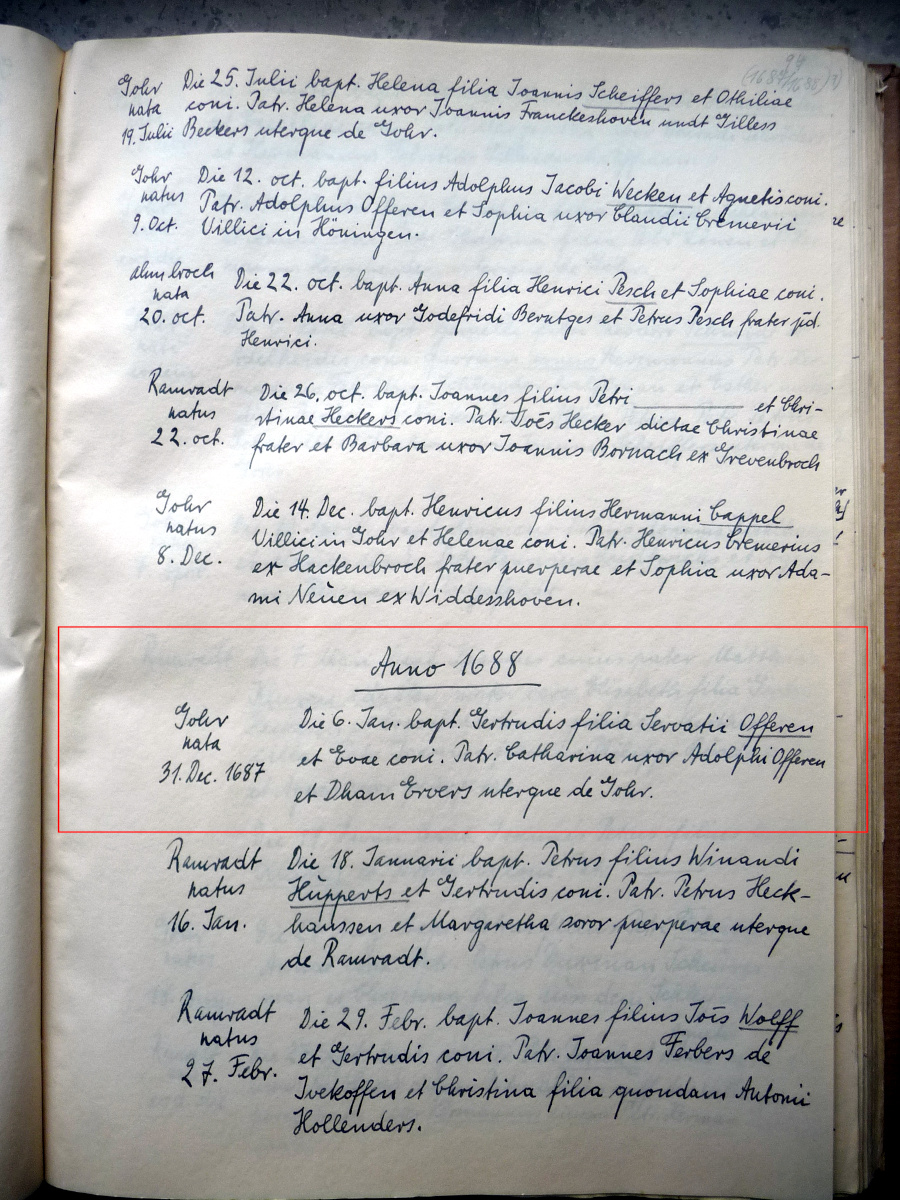 94
(1687/1688)
Gohr Die 25. Iulii bapt. Helena filia Ioannis Scheiffers et Othiliae
nata coni. Patr. Helena uxor Ioannis Franckeshoven undt Gilless
19. Iulii Beckers uterque de Gohr.
Gohr Die 12. oct. bapt. filius Adolphus Iacobi Wecken et Agnetis coni.
natus Patr. Adolphus Offeren et Sophia uxor Claudii Cremerii
9. Oct. Villici in Höningen.
ahm broch Die 22. oct. bapt. Anna filia Henrici Pesch et Sophiae coni.
nata
20. oct. Patr. Anna uxor Godefridi Berntges et Petrus Pesch frater pd.
Henrici.
Ramradt Die 26. oct. bapt. Ioannes filius Petri ________ et Chri-
natus stinae Heckers coni. Patr. Ioes Hecker dictae Christinae
22. oct. frater et Barbara uxor Ioannis Bornach ex Grevenbroch
Gohr Die 14. Dec. bapt. Henricus filius Hermanni Cappel
natus Villici in Gohr et Helenae coni. Patr. Henricus Cremerius
8. Dec. ex Hackenbroch frater puerperae et Sophia uxor Ada-
mi Neuen ex Widdeshoven.
Anno 1688
Gohr Die 6. Ian. bapt. Gertrudis filia Servatii Offeren
nata et Evae coni. Patr. Catharina uxor Adolphi Offeren
31. Dec. 1687 et Dham Ervers uterque de Gohr.
Ramradt Die 18. Ianuarii bapt. Petrus filius Winandi
natus Hüpperts et Gertrudis coni. Patr. Petrus Heck-
16. Jan. haussen et Margaretha soror puerperae uterque
de Ramradt.
Ramradt Die 29. Febr. bapt. Ioannes filius Iois Wolff
natus et Gertrudis coni. Patr. Ioannes Ferbers de
27. Febr. Ivekoffen et Christina filia quondam Antonii
Hollenders.